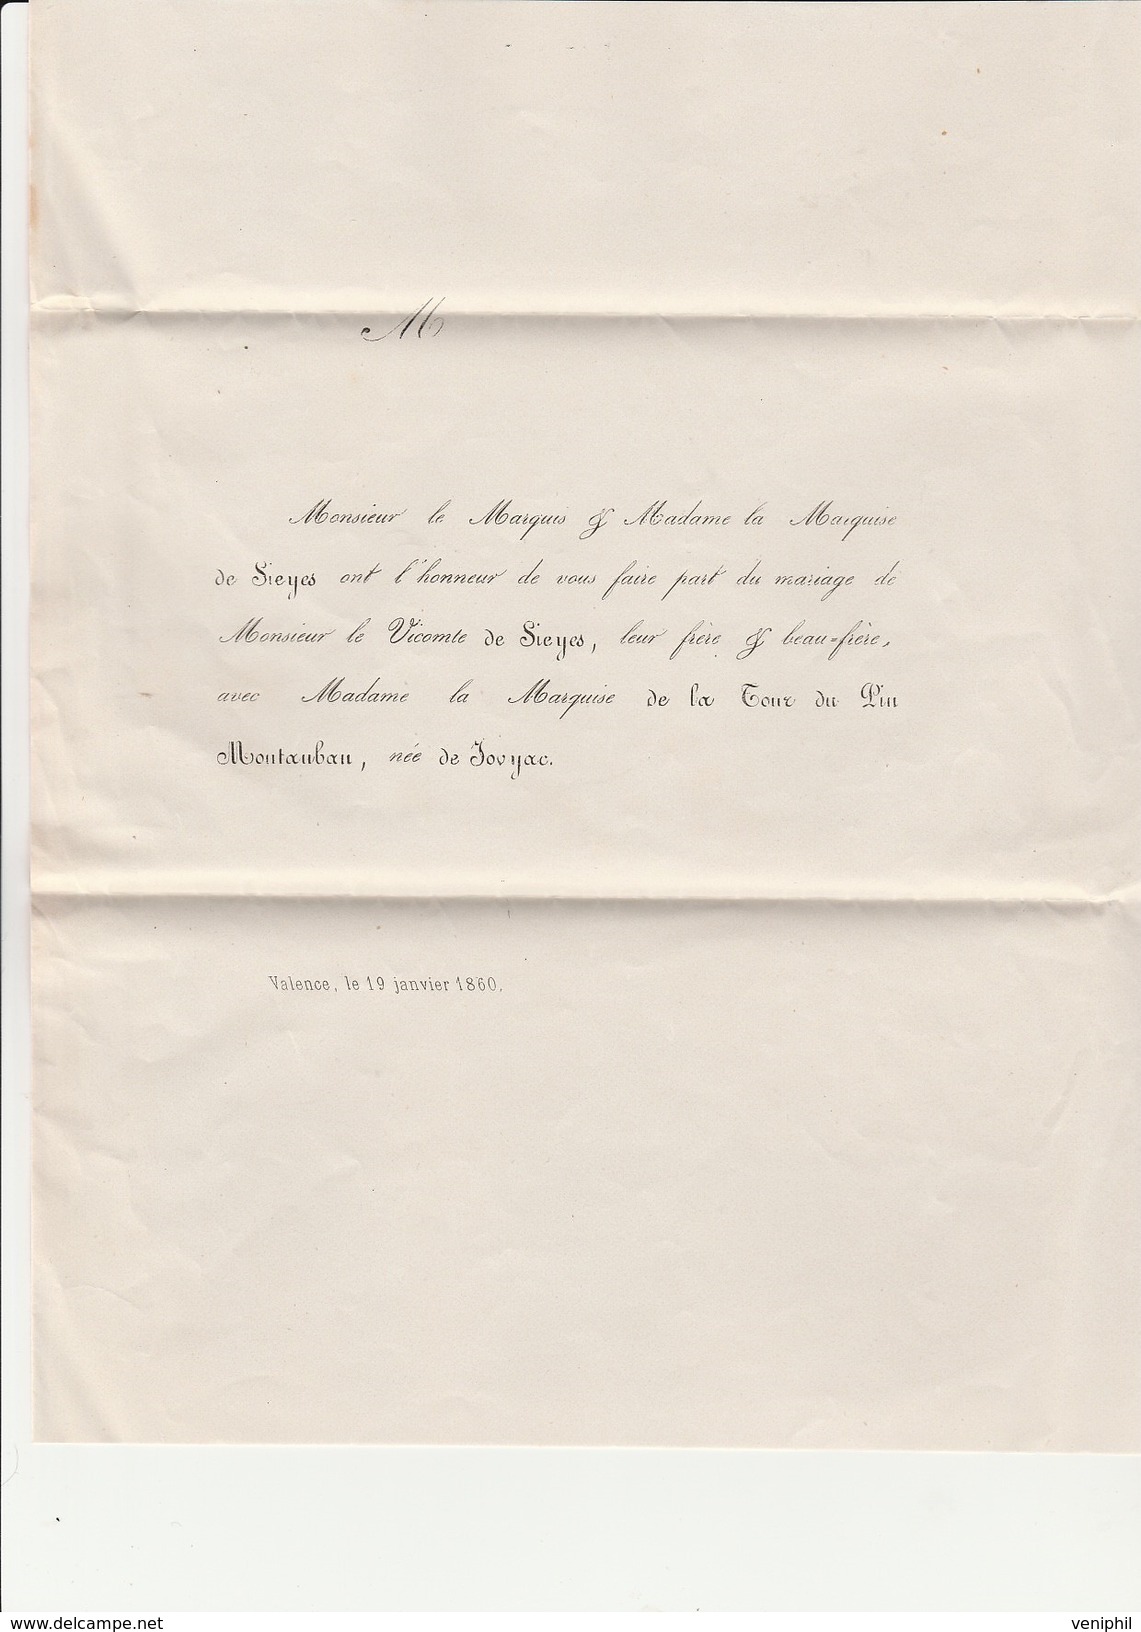 M
Monsieur le Marquis & Madame la Marquise
de Sieyes ont l'honneur de vous faire part du mariage de
Monsieur le Vicomte de Sieyes, leur frère & beau=frère,
avec Madame la Marquise de la Tour du Pin
Montauban, née de Jovyac.
Valence, le 19 janvier 1860.
www.delcampe.net
veniphil